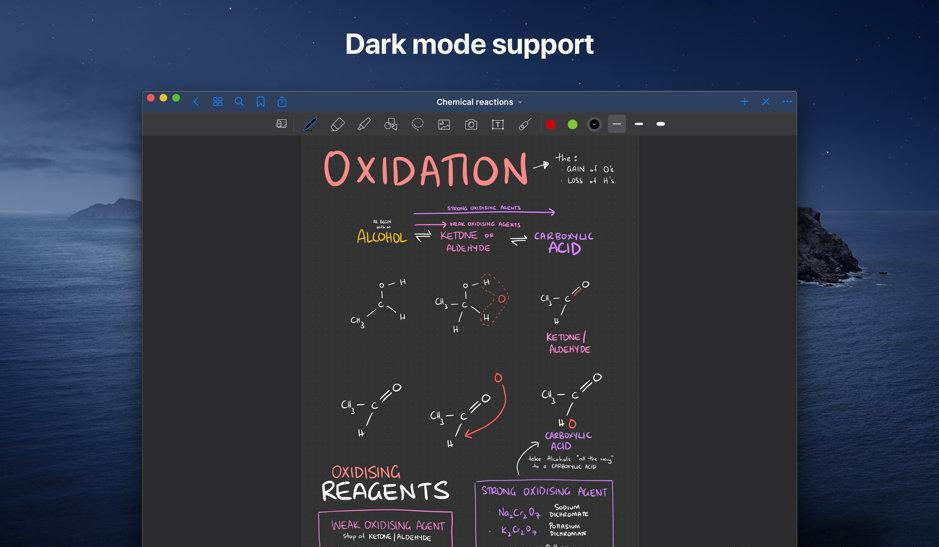 Dark mode support
Chemical reactions
OXIDATION
the:
· GAIN of O's
· LOSS of H's
STRONG OXIDISING AGENTS
WEAK OXIDISING AGENTS
ALCOHOL
KETONE OR
ALDEHYDE
CARBOXYLIC
ACID
O H
C
CH3 H
O H
CH3 C O
H
H
O
CH3 C
H
KETONE/
ALDEHYDE
O
CH3 C
H
O
O
CH3 C
H
O
CH3 C
H O
CARBOXYLIC
ACID
take Alcohols "all the way"
to a CARBOXYLIC ACID
OXIDISING
REAGENTS
WEAK OXIDISING AGENT
Stop at KETONE/ALDEHYDE
STRONG OXIDISING AGENT
· Na2Cr2O7 SODIUM
DICHROMATE
· K2Cr2O7 POTASSIUM
DICHROMATE